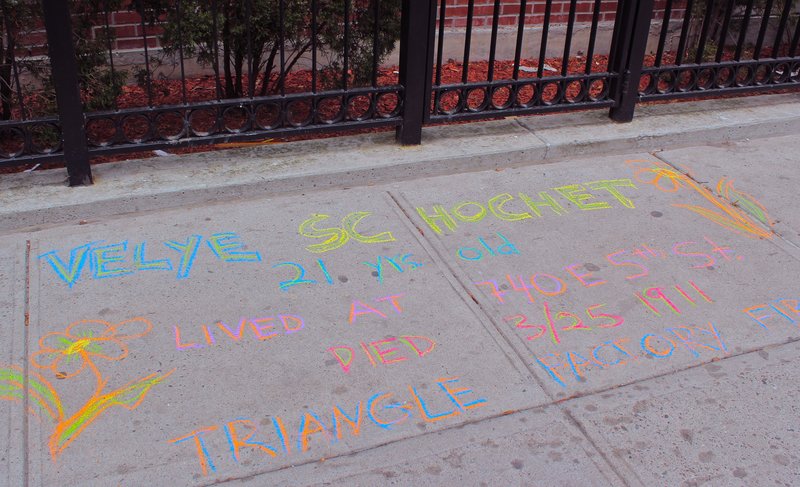 VELYE SCHOCHET
21 yrs old
LIVED AT 740 E 5th St.
DIED 3/25/1911
TRIANGLE FACTORY FIR